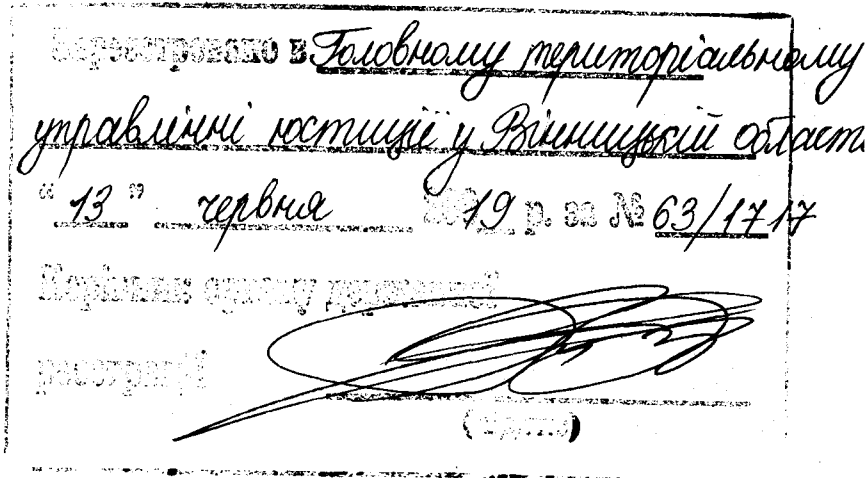 Зареєстровано в Головному територіальному
управлінні юстиції у Вінницькій області
"13" червня 2019 р. за № 63/1717
Керівник органу державної
реєстрації
(підпис)